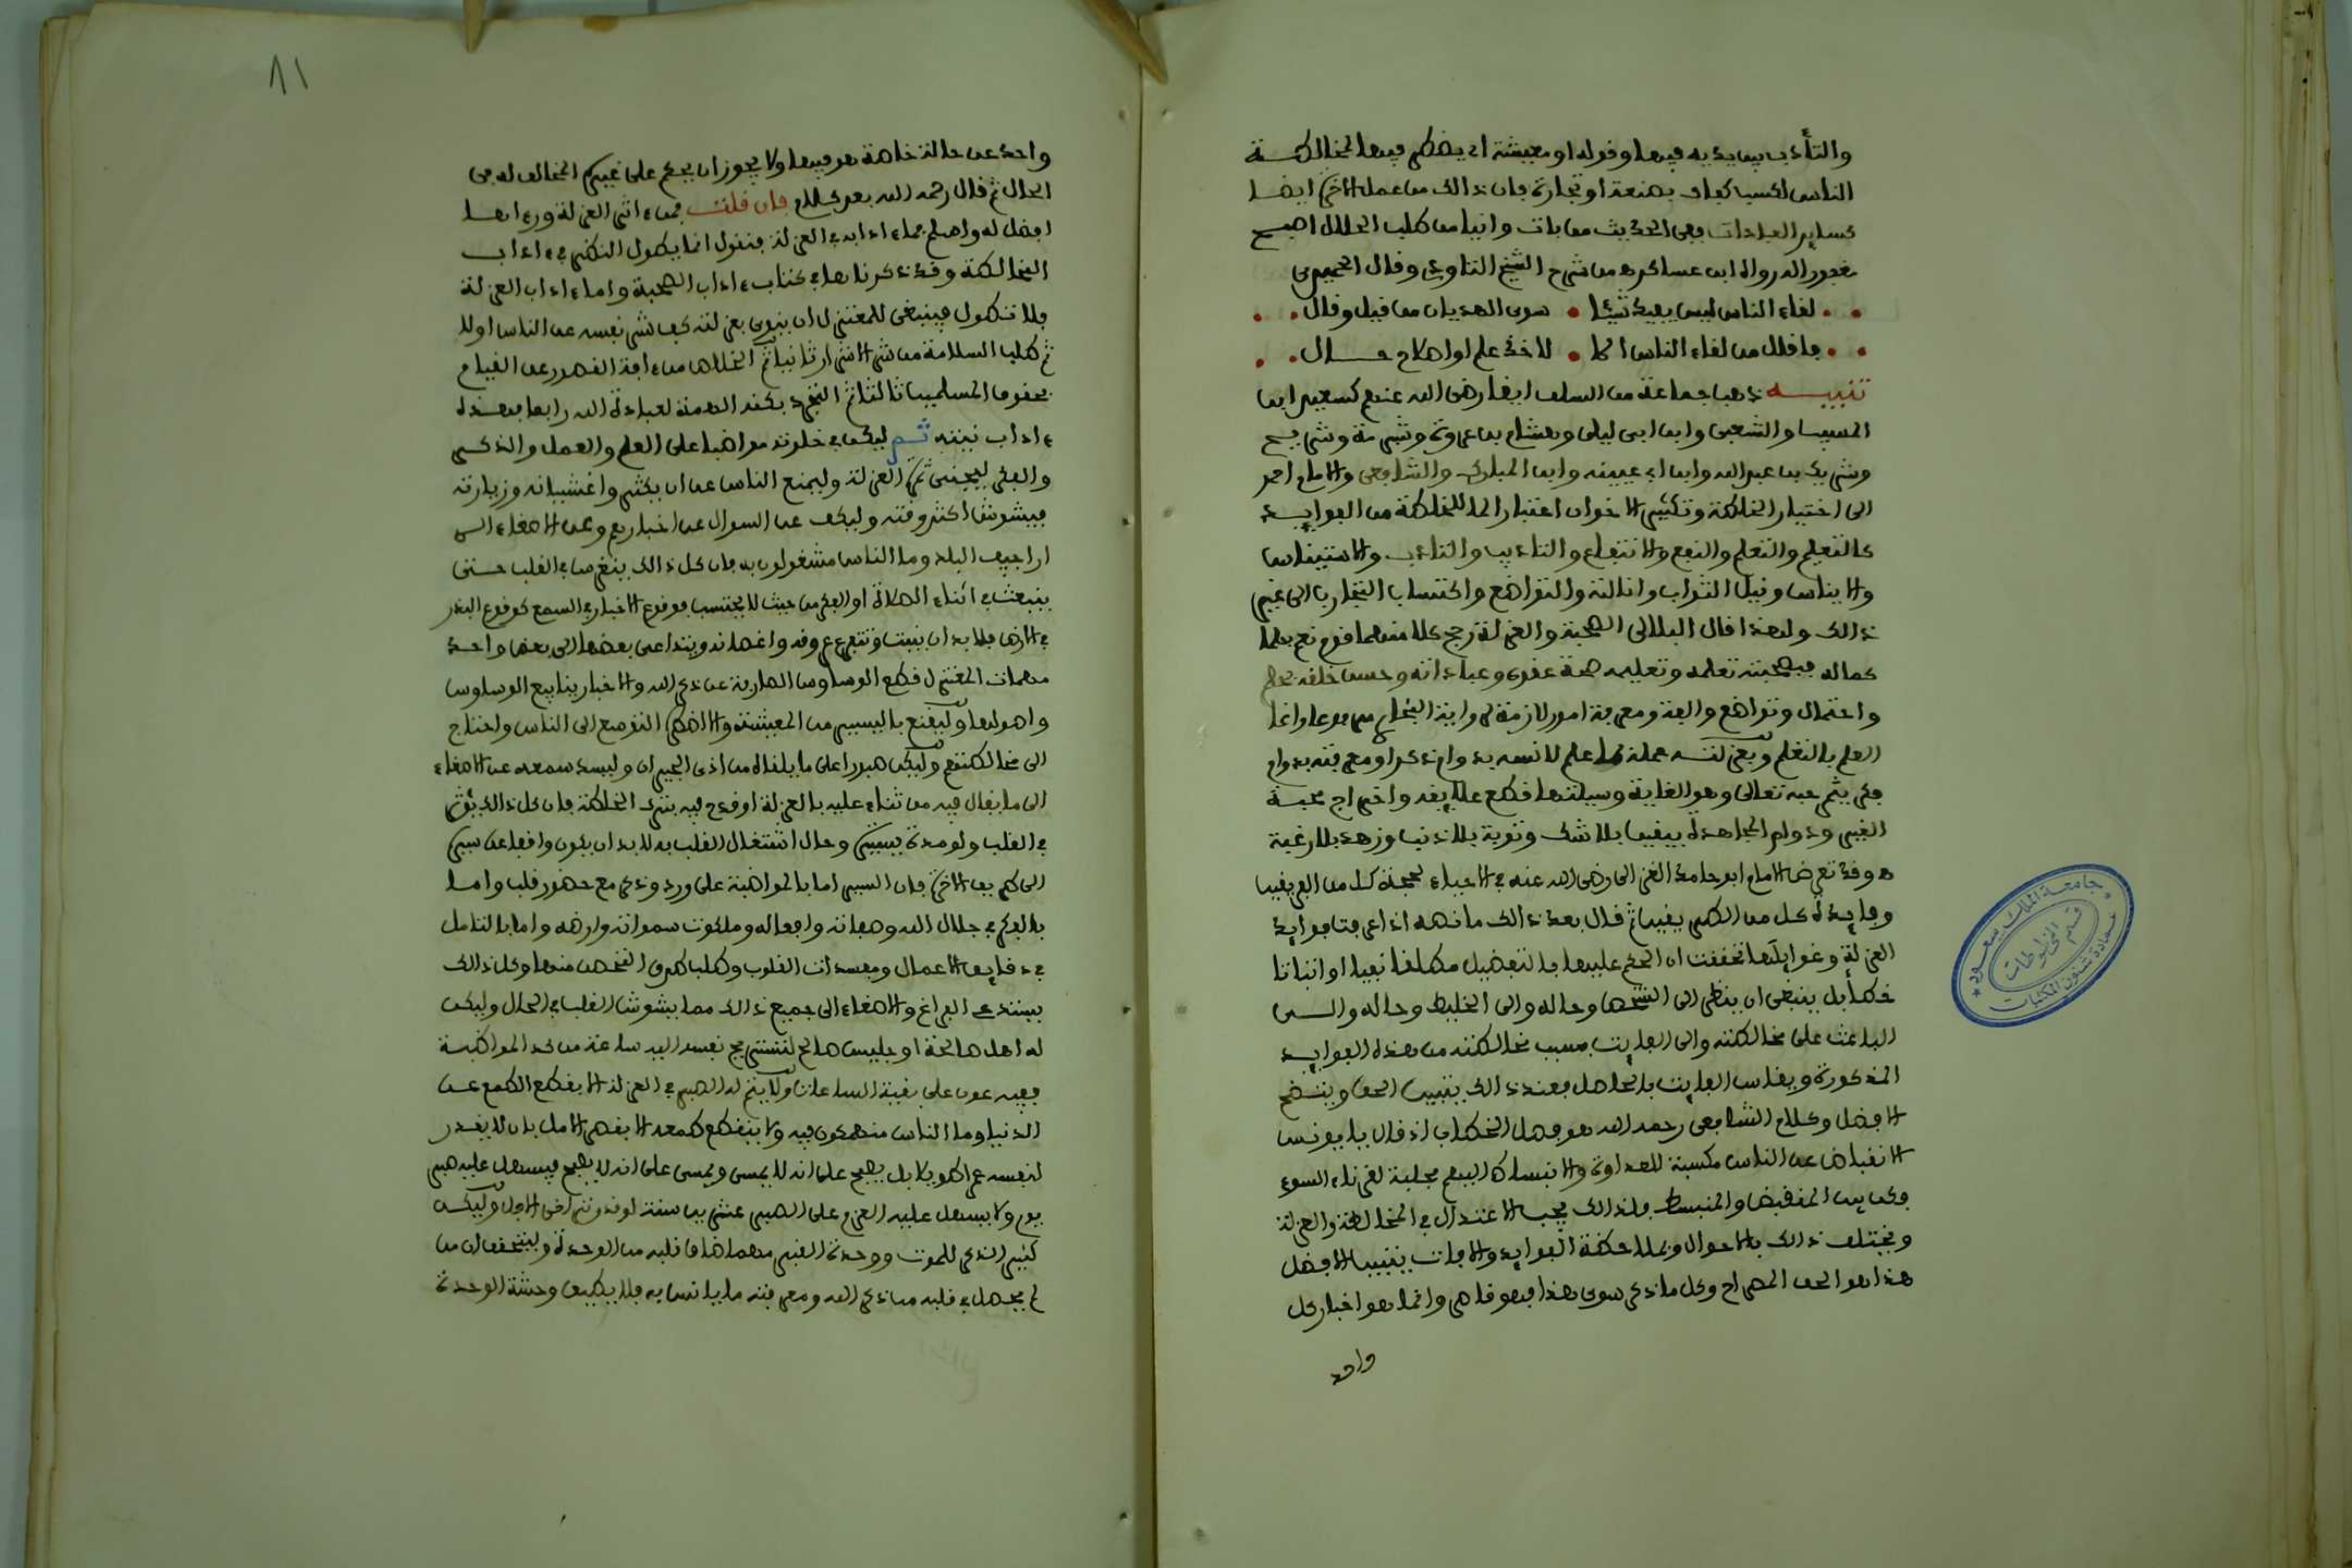 والتأدب بين يديه فيها وقوله او معيشة اي يضطر فيها لمخالطة
الناس لكسب كفاف بصنعة او تجارة فان ذالك من عمل الاخرة ايضا
كساير العبادات ففي الحديث من بات وانيا من طلب الحلال اصبح
مغفورا له رواه ابن عساكر من شرح الشيخ التاودي وقال الحميدي
لقاء الناس ليس يفيد شيئا سوى الهذيان من قيل وقال
فاقلل من لقاء الناس الا لاخذ علم او اصلاح حال
تنبيه ذهب جماعة من السلف ايضا رضي الله عنهم كسعيد ابن
المسيب والشعبي وابن ابي ليلى وهشام بن عروة وشبرمة وشريح
وشريك بن عبد الله وابن ابي عيينه وابن المبارك والشافعي والامام احمد
الى اختيار الخلطة وتكثير الاخوان اعتبارا لما للخلطة من الفوايد
كالتعليم والتعلم والنفع والانتفاع والتاديب والتادب والاستيناس
والايناس ونيل الثواب وانالته والتواضع واكتساب التجارب الى غير
ذالك ولهذا قال البلالي الصحبة والعزلة رجح كلا منهما قوم نعم بعلما
كماله فبصحبته تعلمه وتعليمه صحة عقوده وعباداته وحسن خلقه بحلم
واحتمال وتواضع والفة ومعرفة امور لازمة
العلم بالتعلم وبعزلته عمله بما علم لانسه به دوام ذكر او معرفته بدوام
فكر يثمر حبه تعالى وهو الغاية وسيلتها قطع علايقه واخراج محبة
الغير ودوام المجاهدة بيقين بلا شك وتوبة بلا ذنب وزهد بلا رغبة
ه وقد تعرض الامام ابو حامد الغزالى رضي الله عنه في الاحياء لحجة كل من الفريقين
وفايدة كل من الطريقين ثم قال بعد ذالك ما نصه اذا عرفت فوايد
العزلة وغوايلها تحققت ان الحكم عليها بالتفضيل مطلقا نفيا او اثباتا
خطأ بل ينبغي ان ينظر الى الشخص وحاله والى الخليط وحاله والى
الباعث على مخالطته والى الفايت بسبب مخالطته من هذه الفوايد
المذكورة ويقاس الفايت بالحاصل فعند ذالك يتبين الحق ويتضح
الافضل وكلام الشافعي رحمه الله هو فصل الخطاب اذ قال يا يونس
الانقباض عن الناس مكسبة للعداوة والانبساط اليهم مجلبة لقرناء السوء
فكن بين المنقبض والمنبسط فلذالك يجب الاعتدال في المخالطة والعزلة
ويختلف ذالك بالاحوال وبملاحظة الفوايد والافات يتبين الافضل
هذا هو الحق الصراح وكل ما ذكر سوى هذا فهو قاصر وانما هو اخبار كل
واحد
11
واحد عن حالة خاصة هو فيها ولا يجوز ان يحكم على غيره المخالف له في
الحال ثم قال رحمه الله بعد كلام فان قلت فمن ءاثر العزلة ورءاها
افضل له واصلح فما ءادابه في العزلة فنقول انما يطول النظر في ءاداب
المخالطة وقد ذكرناها في كتاب ءاداب الصحبة واما ءاداب العزلة
فلا تطول فينبغي للمعتزل ان ينوي بعزلته كف شر نفسه عن الناس اولا
ثم طلب السلامة من شر الاشرار ثانيا ثم الخلاص من ءافة القصور عن القيام
بحقوق المسلمين ثالثا ثم التجرد بكنه الهمة لعبادة الله رابعا فهذه
ءاداب نيته ثم ليكن في خلوته مواظبا على العلم والعمل والذكر
والفكر ليجتني ثمرة العزلة وليمنع الناس عن ان يكثروا غشيانه وزيارته
فيشوش اكثر وقته وليكف عن السوال عن اخبارهم وعن الاصغاء الى
اراجيف البلد وما الناس مشغولون به فان كل ذالك ينغرس في القلب حتى
ينبعث في اثناء الصلاة او الفكر من حيث لا يحتسب فوقوع الاخبار في السمع كوقوع البذر
في الارض فلا بد ان ينبت وتتفرع عروقه واغصانه ويتداعى بعضها الى بعض واحد
مهمات المعتزل قطع الوساوس الصارفة عن ذكر الله والاخبار ينابيع الوساوس
واصولها وليقنع باليسير من المعيشة والا اضطره التوسع الى الناس واحتاج
الى مخالطتهم وليكن صبورا على ما يلقاه من اذى الجيران وليسد سمعه عن الاصغاء
الى ما يقال فيه من ثناء عليه بالعزلة او قدح فيه بترك الخلطة فان كل ذالك يؤثر
في القلب ولو مدة يسيرة وحال اشتغال القلب به لا بد ان يكون واقفا عن سيره
الى طريق الاخرة فان السير اما بالمواظبة على ورد وذكر مع حضور قلب واما
بالفكر في جلال الله وصفاته وافعاله وملكوت سمواته وارضه واما بالتامل
في دقايق الاعمال ومفسدات القلوب وطلب طرق التحصن منها وكل ذالك
يستدعي الفراغ والاصغاء الى جميع ذالك مما يشوش القلب في الحال وليكن
له اهل صالحة او جليس صالح لتستريح نفسه اليه ساعة من كد المواظبة
ففيه عون على بقية الساعات ولا يتم له الصبر في العزلة الا بقطع الطمع عن
الدنيا وما الناس منهمكون فيه ولا ينقطع طمعه الا بقصر الامل بان لا يقدر
لنفسه عمرا طويلا بل يصبح على انه لا يمسي ويمسي على انه لا يصبح فيسهل عليه صبر
يوم ولا يسهل عليه العزم على الصبر عشرين سنة لو قدر تراخي الاجل وليكن
كثير الذكر للموت ووحدة القبر مهما ضاق قلبه من الوحدة وليتحقق ان من
لم يحصل في قلبه من ذكر الله ومعرفته ما يانس به فلا يطيق وحشة الوحدة
جامعة الملك سعود
قسم المخطوطات
عمادة شئون المكتبات